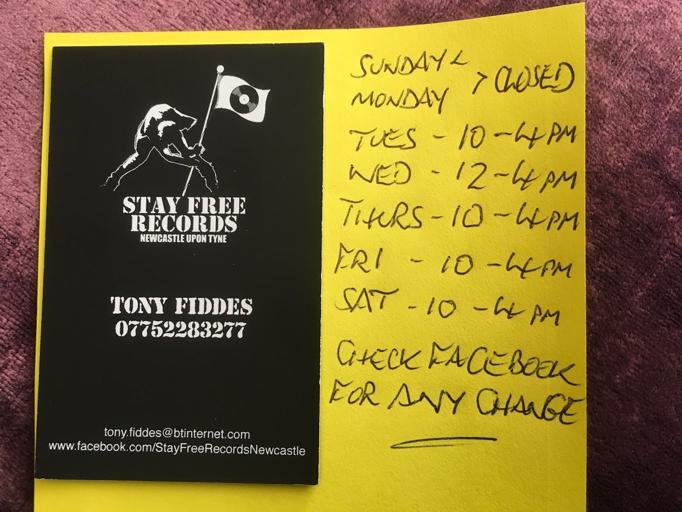 STAY FREE
RECORDS
NEWCASTLE UPON TYNE
TONY FIDDES
07752283277
tony.fiddes@btinternet.com
www.facebook.com/StayFreeRecordsNewcastle
SUNDAY <
MONDAY > CLOSED
TUES - 10 - 4 PM
WED - 12 - 4 PM
THURS - 10 - 4 PM
FRI - 10 - 4 PM
SAT - 10 - 4 PM
CHECK FACEBOOK
FOR ANY CHANGE